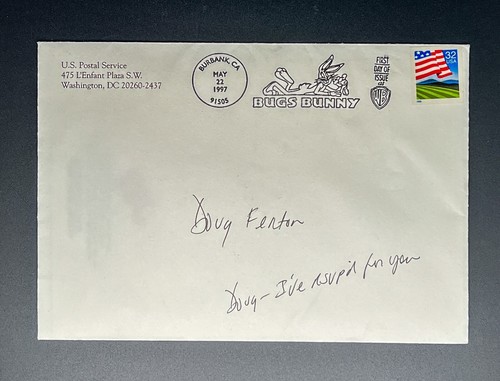 U.S. Postal Service
475 L'Enfant Plaza S.W.
Washington, DC 20260-2437
BURBANK, CA
MAY
22
1997
91505
BUGS BUNNY
FIRST
DAY OF
ISSUE
WB
32
USA
Doug Fenton
Doug - I've rsvp'd for you